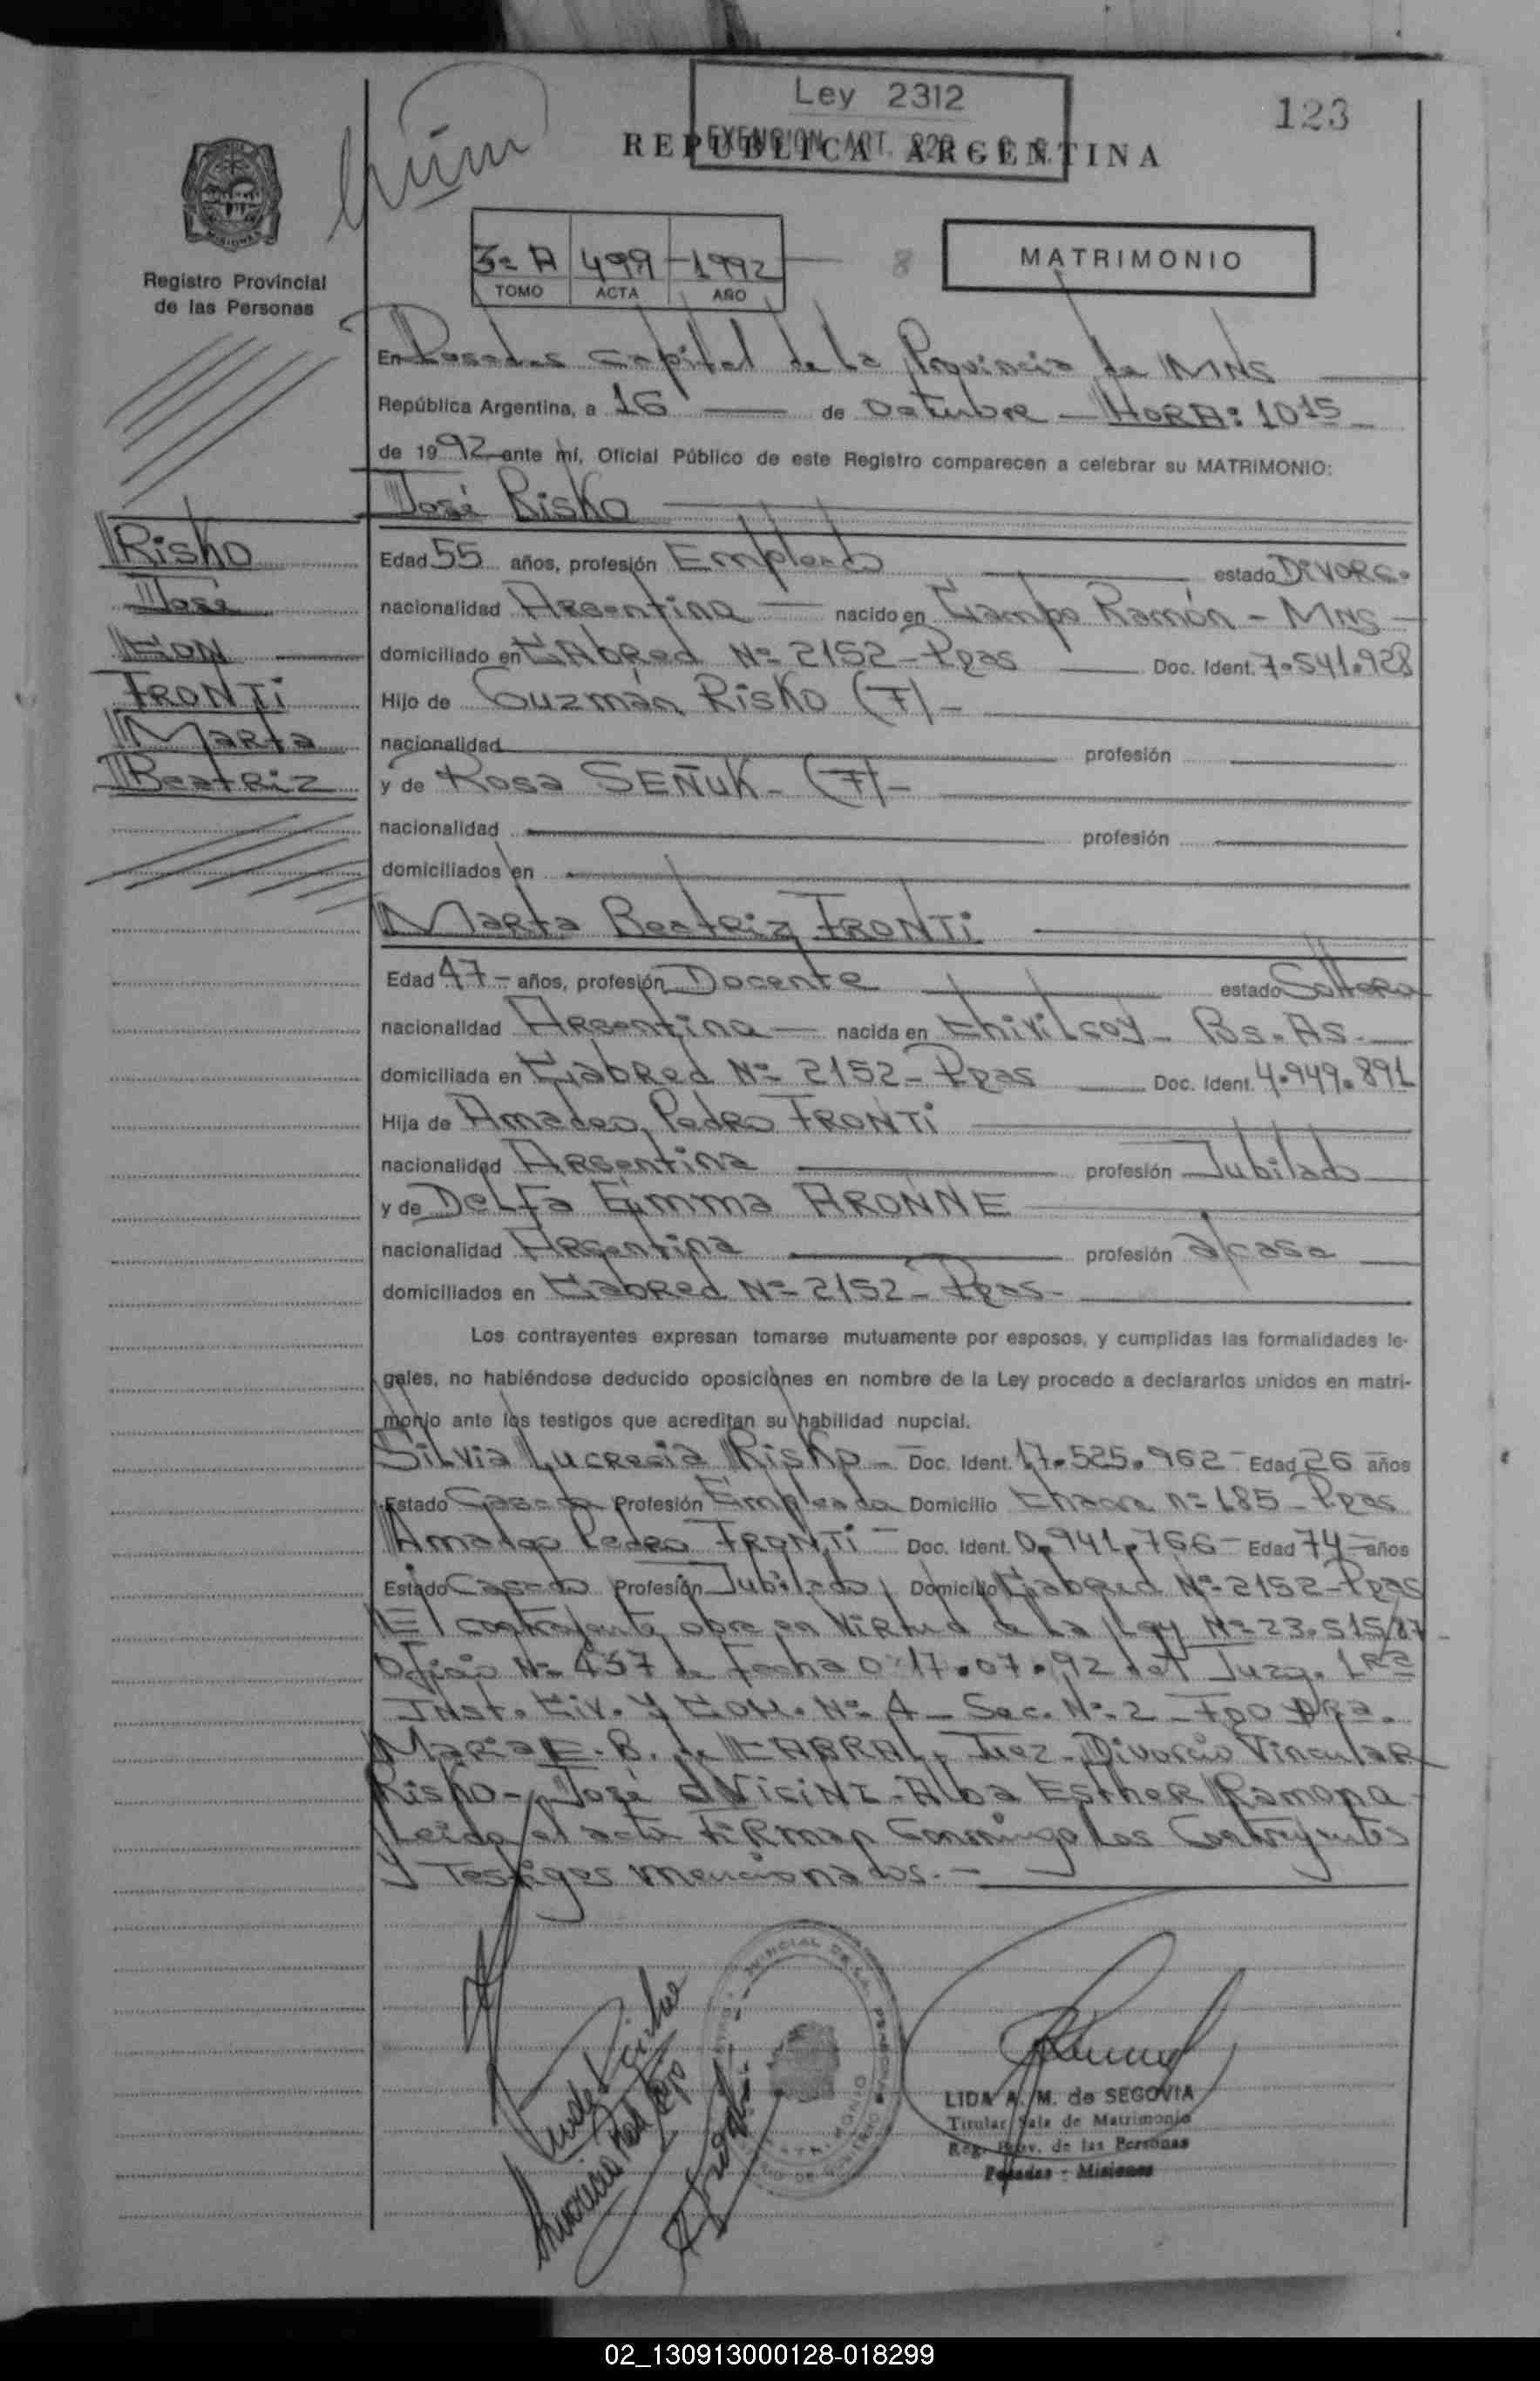 Ley 2312
EXENCION ART.
123
REPUBLICA ARGENTINA
MISIONES
Registro Provincial
de las Personas
3º A 499 1992
TOMO ACTA AÑO
8
MATRIMONIO
En Posadas Capital de la Provincia de MNS
República Argentina, a 16 de Octubre - HORA: 10 15
de 1992 ante mí, Oficial Público de este Registro comparecen a celebrar su MATRIMONIO:
José Risko
Risko
José
CON
FRONTi
Marta
Beatriz
Edad 55 años, profesión Empleado estado DIVORC.
nacionalidad Argentina nacido en Campo Ramón - MNS
domiciliado en Cabred Nº 2152 - Pdas Doc. Ident. 7.541.928
Hijo de Guzmán Risko (F) -
nacionalidad profesión
y de Rosa SEÑUK - (F) -
nacionalidad profesión
domiciliados en
Marta Beatriz FRONTi
Edad 47 - años, profesión Docente estado Soltera
nacionalidad Argentina nacida en Chivilcoy - Bs. As.
domiciliada en Cabred Nº 2152 - Pdas Doc. Ident. 4.949.891
Hija de Amadeo Pedro FRONTi
nacionalidad Argentina profesión Jubilado
y de Delfa Emma ARONNE
nacionalidad Argentina profesión a/casa
domiciliados en Cabred Nº 2152 - Pdas -
Los contrayentes expresan tomarse mutuamente por esposos, y cumplidas las formalidades le-
gales, no habiéndose deducido oposiciones en nombre de la Ley procedo a declararlos unidos en matri-
monio ante los testigos que acreditan su habilidad nupcial.
Silvia Lucrecia Risko - Doc. Ident. 17.525.962 - Edad 26 años
Estado Casada Profesión Empleada Domicilio Chacra nº 185 - Pdas
Amadeo Pedro FRONTi - Doc. Ident. 0.941.766 - Edad 74 años
Estado Casado Profesión Jubilado Domicilio Cabred Nº 2152 - Pdas
El contrayente obra en virtud de la Ley Nº 23.515/87 -
Oficio Nº 437 de fecha 017.07.92 del Juzg. 1ra
Inst. Civ. y Com. Nº 4 - Sec. Nº 2 - Fdo Dra.
Maria E. B. de CABRAL - Juez - Divorcio Vincular
Risko - José c/ VICINI - Alba Esther Ramona -
Leida el acta firman conmigo los Contrayentes
y Testigos mencionados. -
LIDA A. M. de SEGOVIA
Titular Sala de Matrimonio
Reg. Prov. de las Personas
Posadas - Misiones
02_130913000128-018299